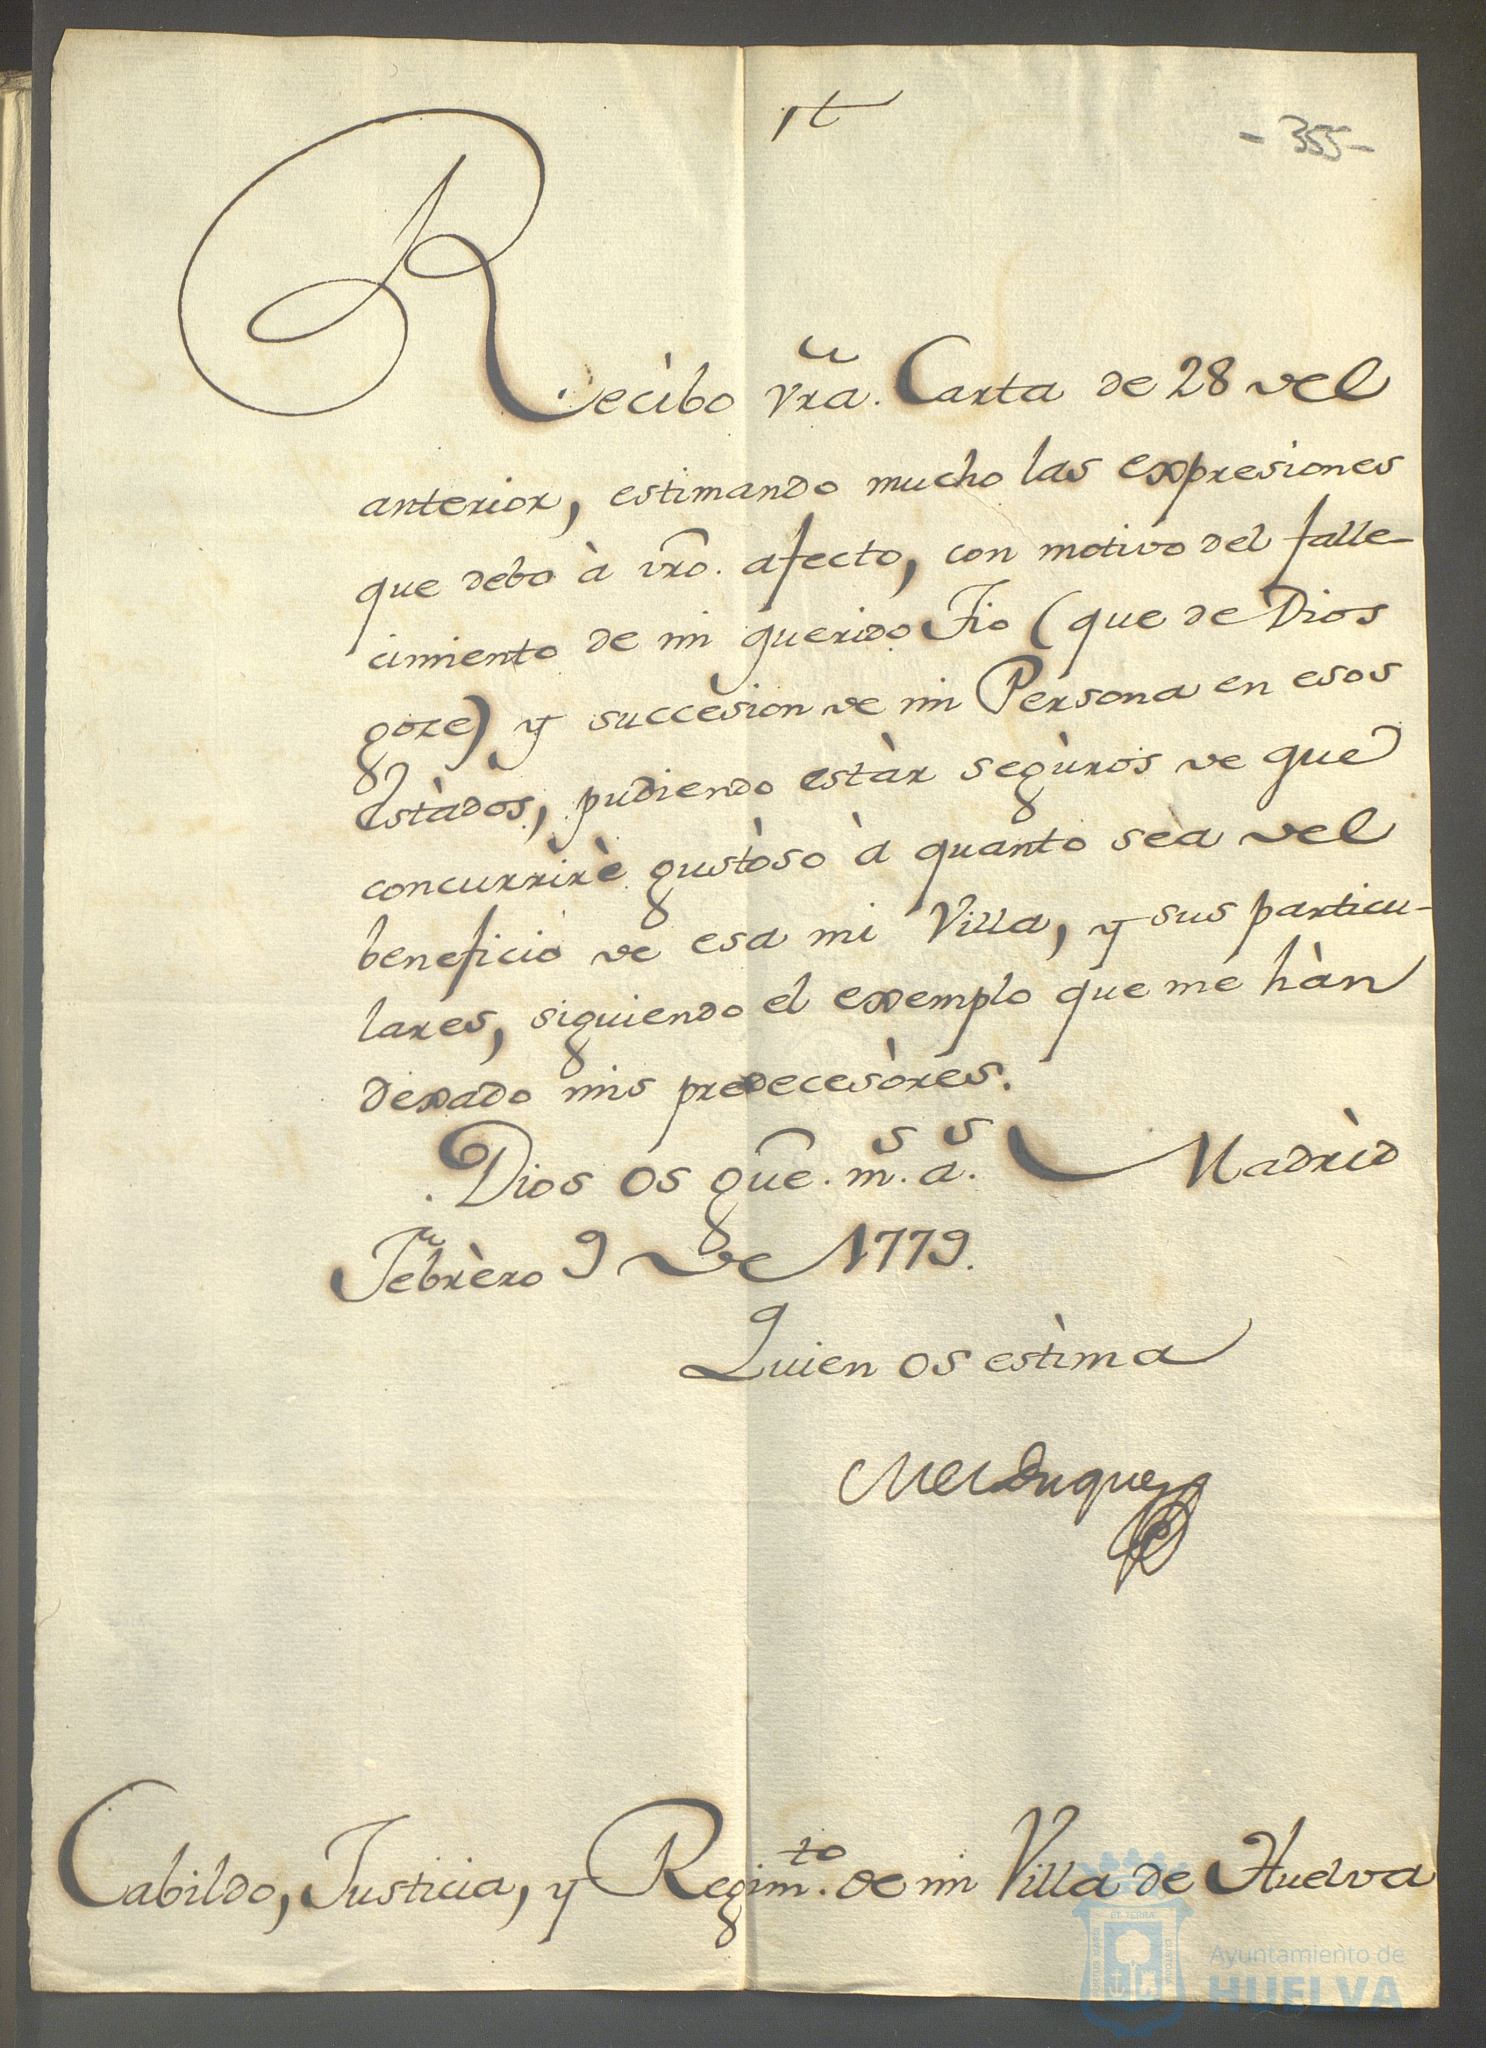 - 355 -
Recibo vra. Carta de 28 del
anterior, estimando mucho las expresiones
que debo à vro. afecto, con motivo del falle-
cimiento de mi querido Tio (que de Dios
goze) y succesion de mi Persona en esos
Estàdos, pudiendo estàr segùros de que
concurrirè gustòso à quanto sèa del
beneficio de esa mi Villa, y sus particu-
lares, siguiendo el exemplo que me hàn
dexado mis predecesòres.
Dios os gue. ms. as. Madrid
Febrèro 9 de 1779.
Quien os estìma
el Duque
Cabildo, Justicia, y Regimto. de mi Villa de Huelva
Ayuntamiento de
HUELVA